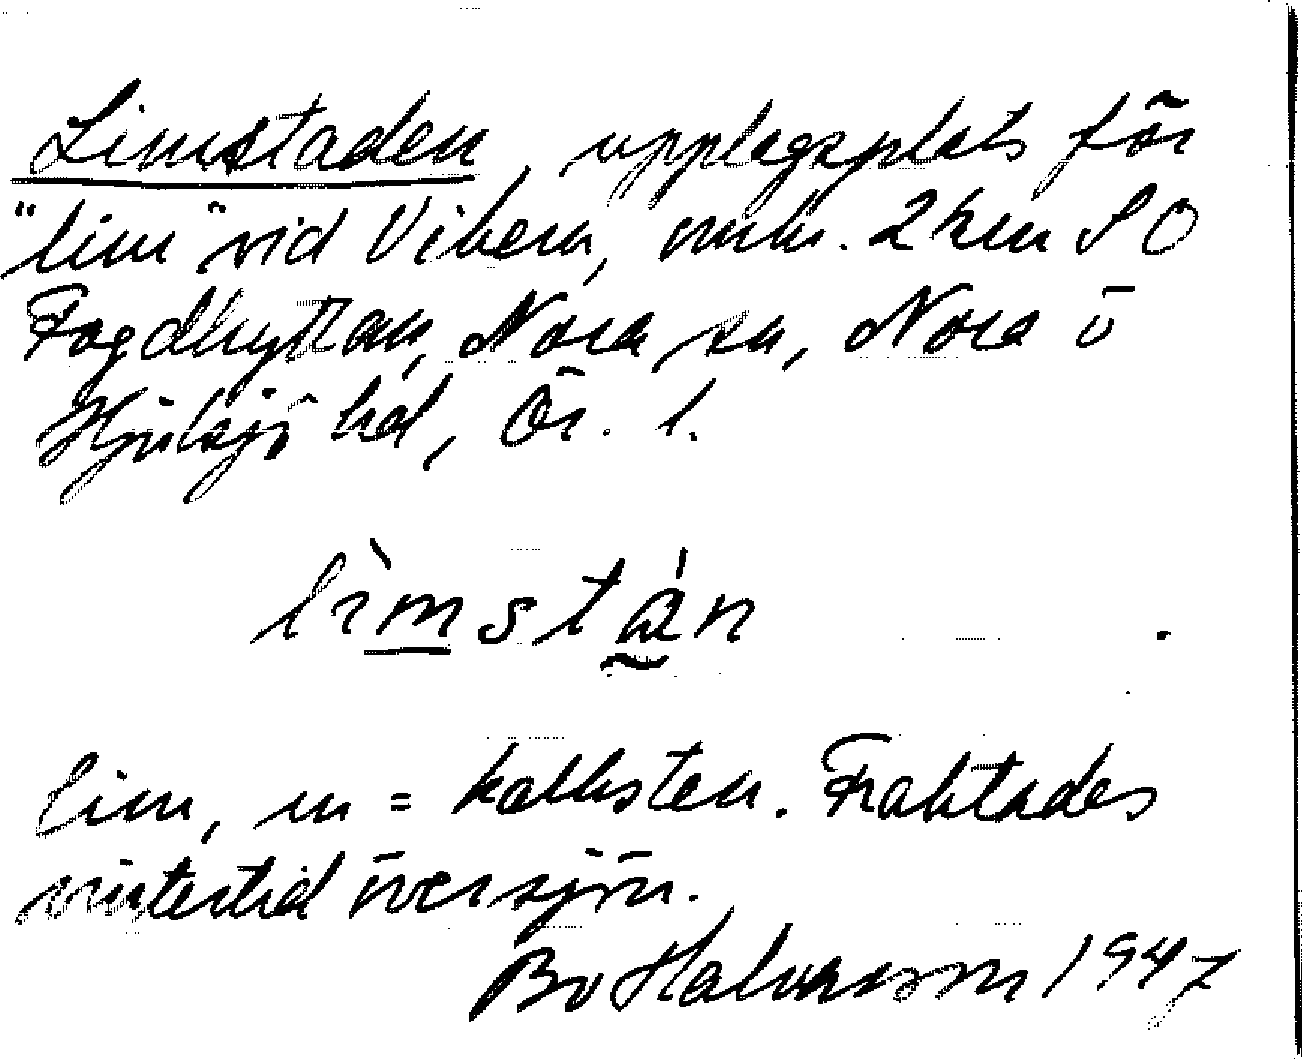 Limstaden, upplagsplats för
"lim" vid Vikern, omkr. 2 km SO
Fogdhyttan, Nora sn, Nora o
Hjulsjö hd, Ör. l.
lìmstán
lim, m = kalksten. Fraktades
vintertid över sjön.
Bo Halvarsson 1947